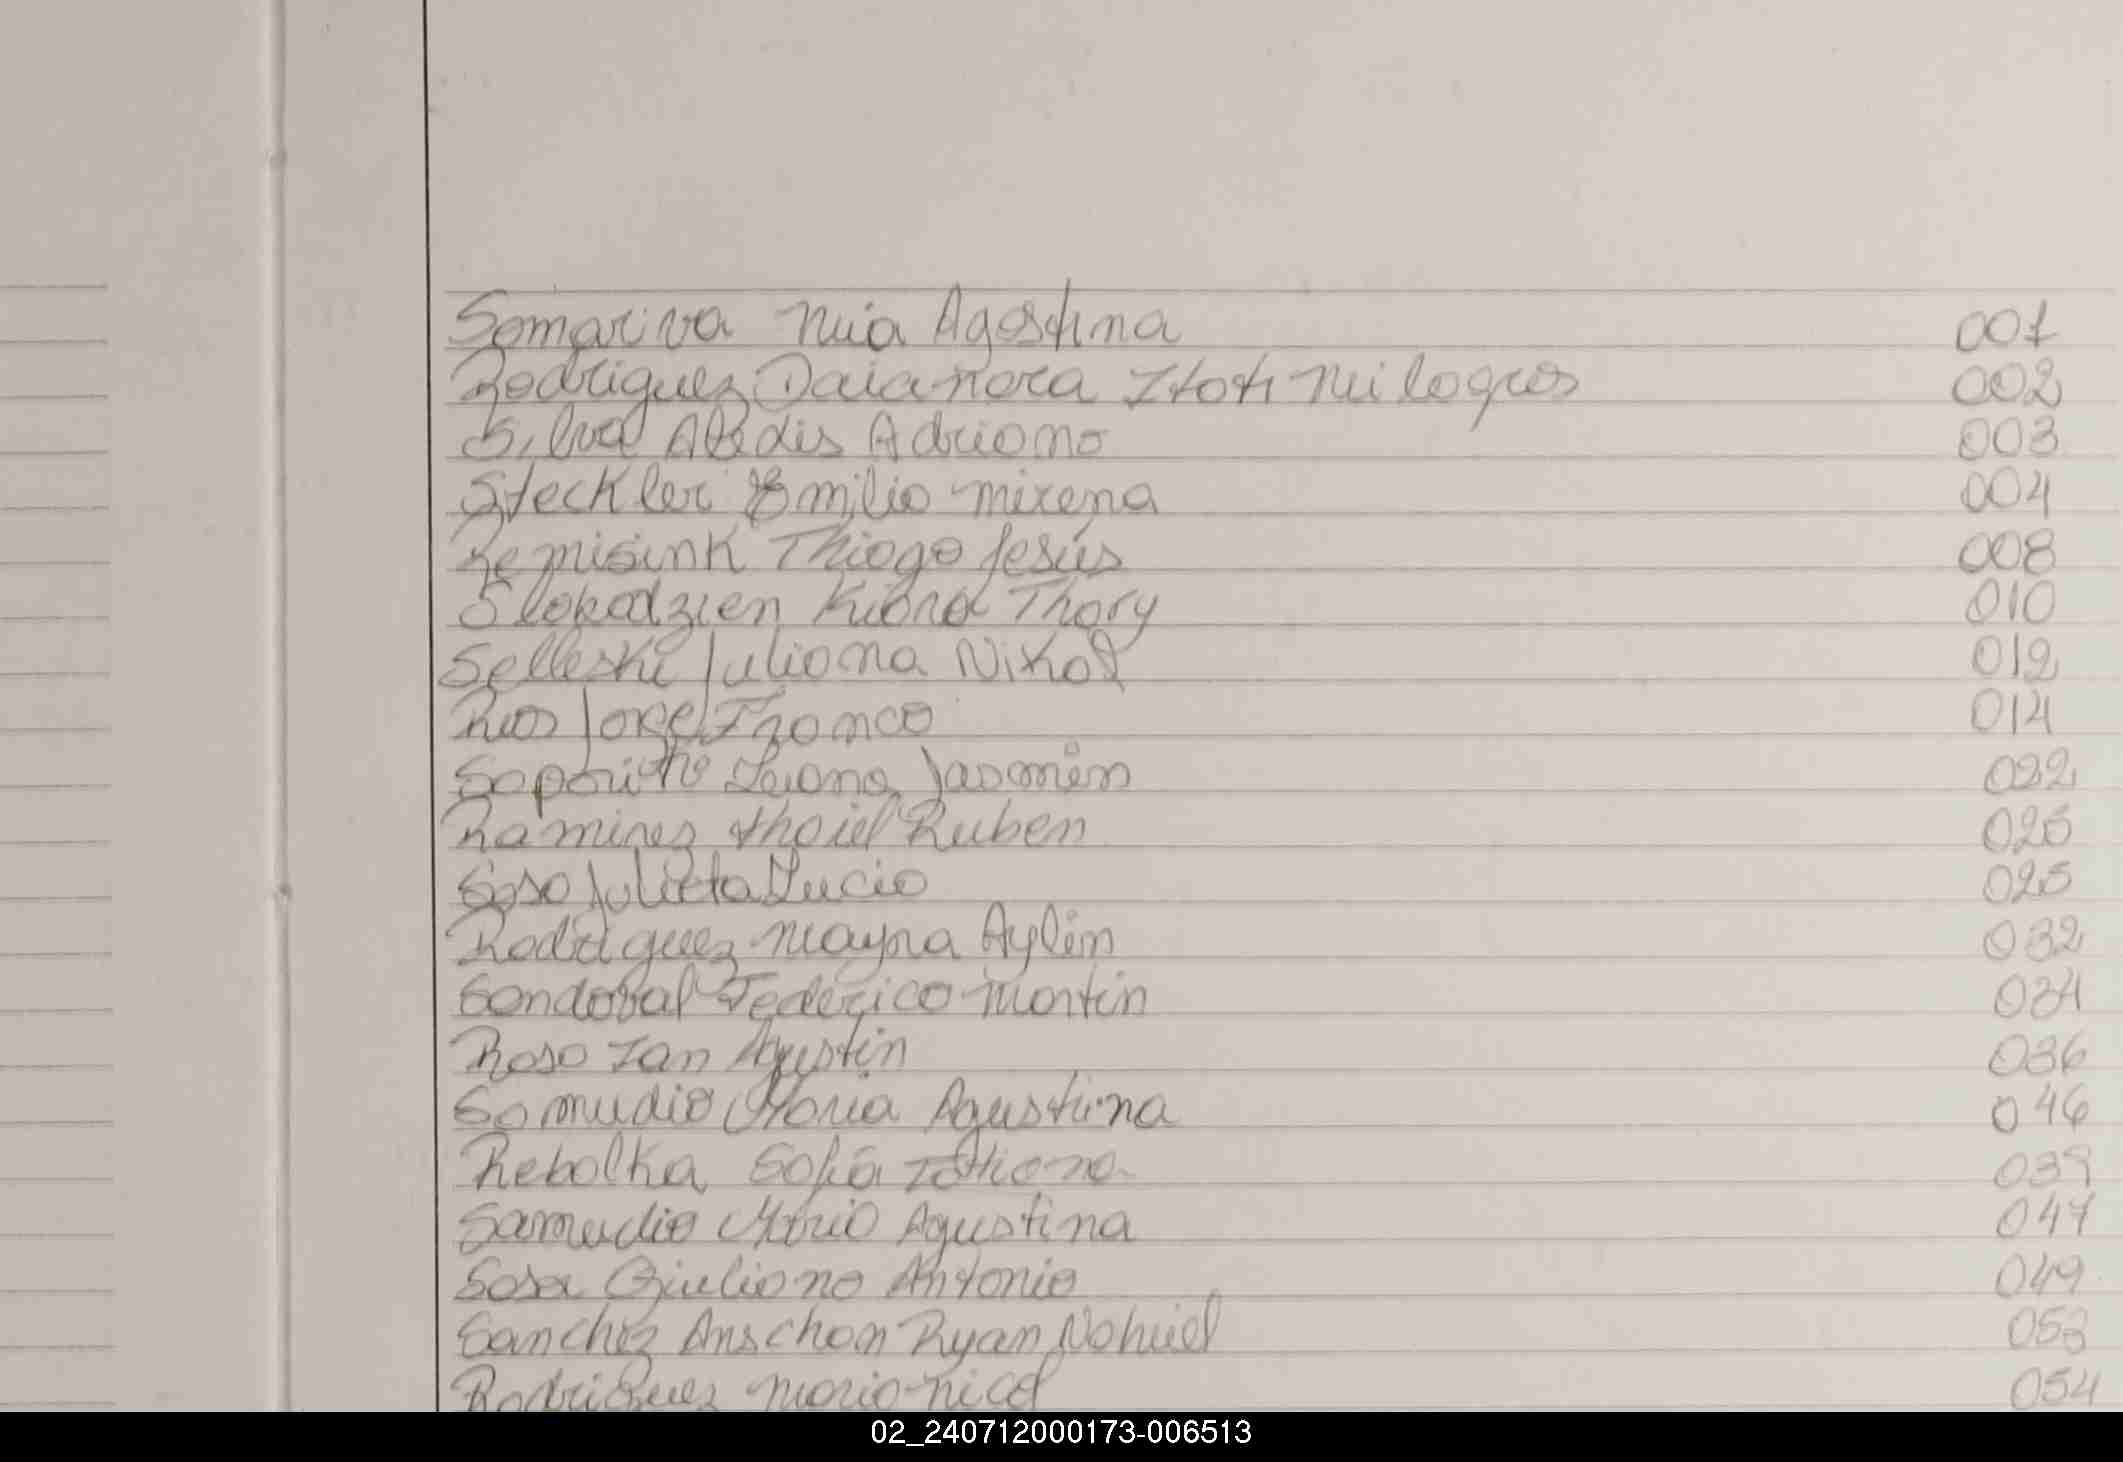 Somariva Mia Agostina 001
Rodriguez Daiana Itati Milagros 002
Silva Aledis Adriano 003
Steckler Emilio mirena 004
Remisink Thiago Jesús 008
Slobodzien Kiana Thary 010
Selleski Juliana Nikol 012
Rios Jorge Franco 014
Saporitti Luana Jasmin 022
Ramirez Ruben 025
Sosa Julieta Lucia 025
Rodriguez Mayra Aylin 032
Sandoval Federico Martin 034
Roso Ian Agustin 036
Samudio Maria Agustina 046
Rebolka Sofia Tatiana 039
Samudio Maria Agustina 047
Sosa Giuliano Antonio 049
Sanchez Anschan Ryan Nahuel 053
Rodriguez Maria Nicol 054
02_240712000173-006513